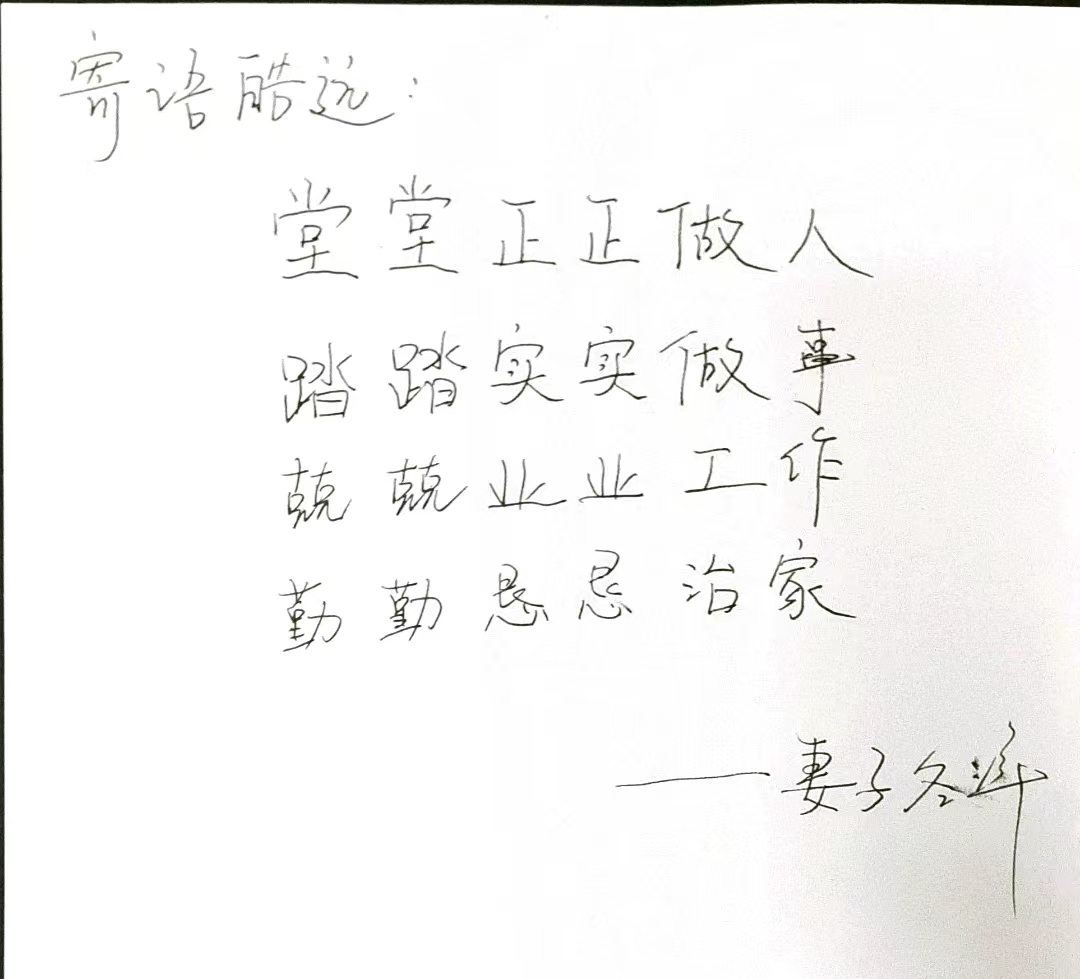 寄语皓远：
堂堂正正做人
踏踏实实做事
兢兢业业工作
勤勤恳恳治家
——妻子冬